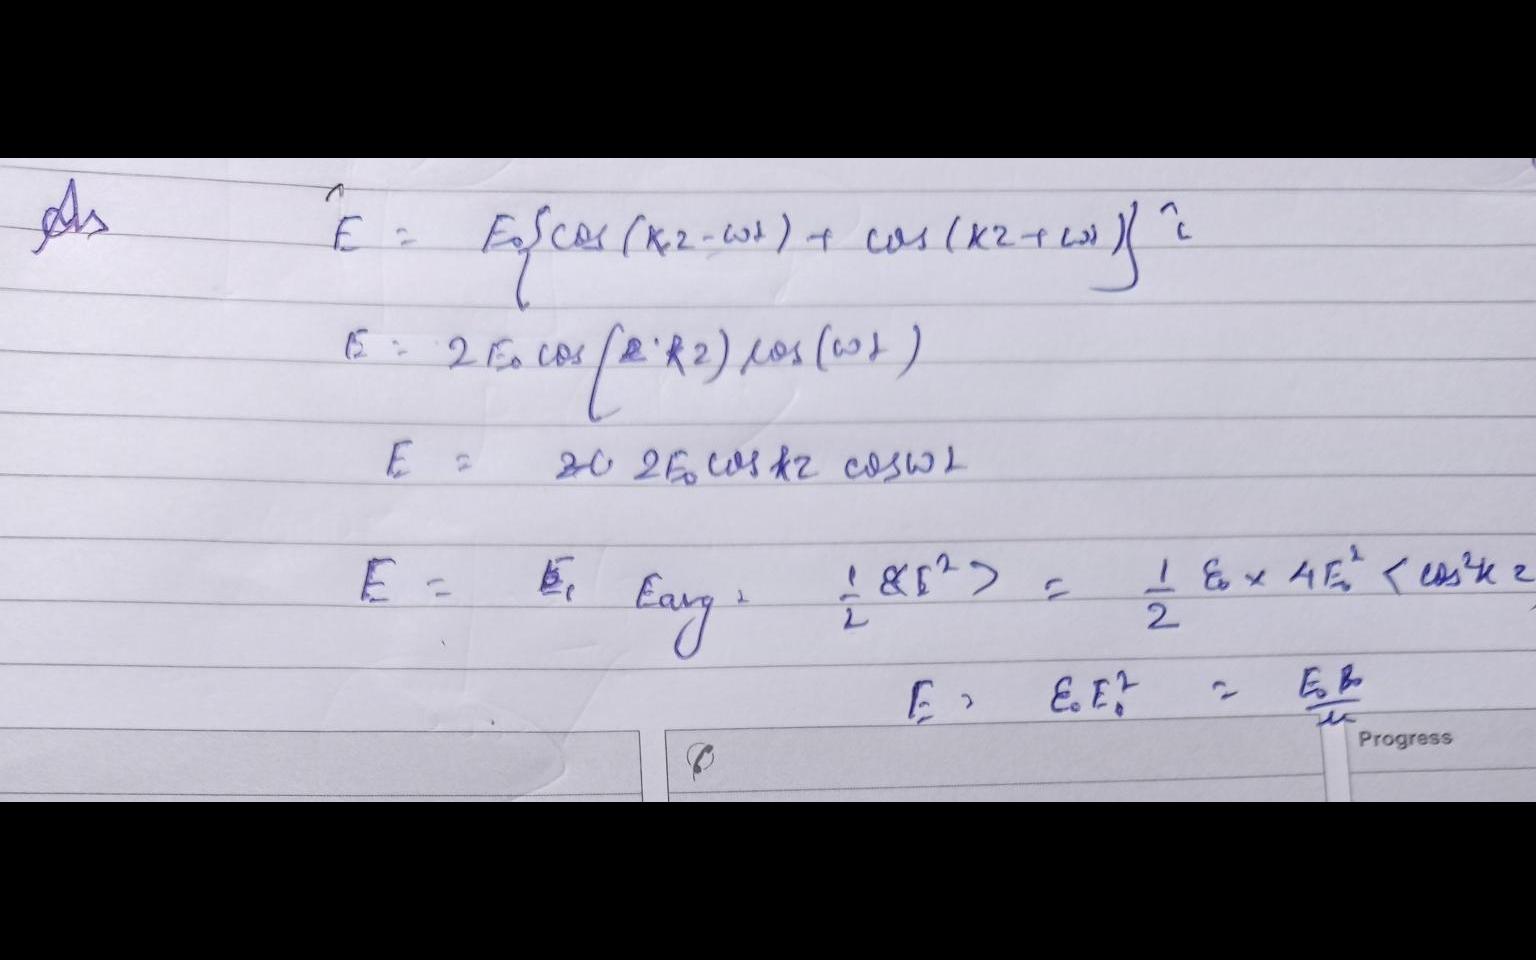 As E = E₀{cos(kz-ωt) + cos(kz+ωt)} î
E = 2E₀ cos(kz) cos(ωt)
E = 2E₀ cos kz cos ωt
E = E₁ Eavg = 1/2 ε<E²> = 1/2 ε₀ × 4E₀² <cos²kz
E = ε₀E₀² = E₀B₀/μ
Progress